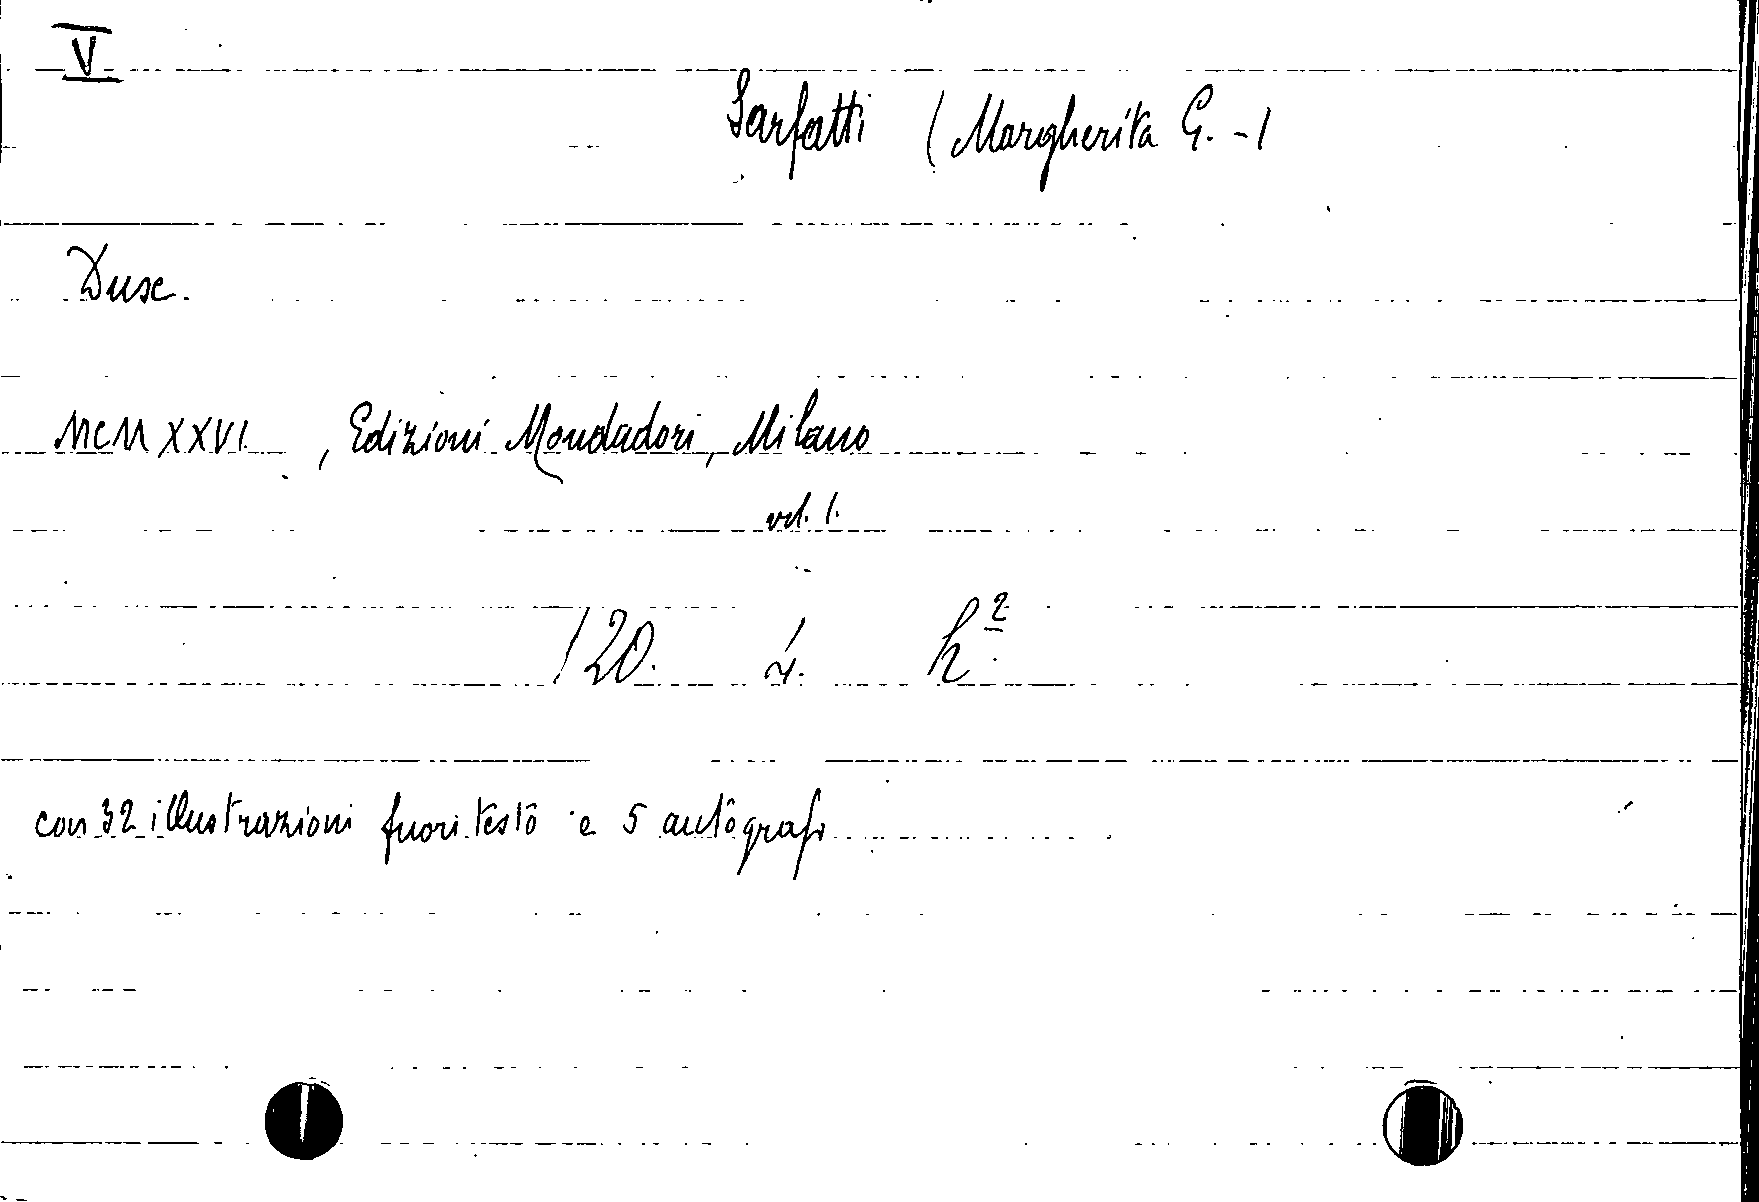 V
Sarfatti (Margherita G. -)
Dux.
MCMXXVI, Edizioni Mondadori, Milano
vol. 1.
120. 4. h²
con 32 illustrazioni fuori testo e 5 autografi